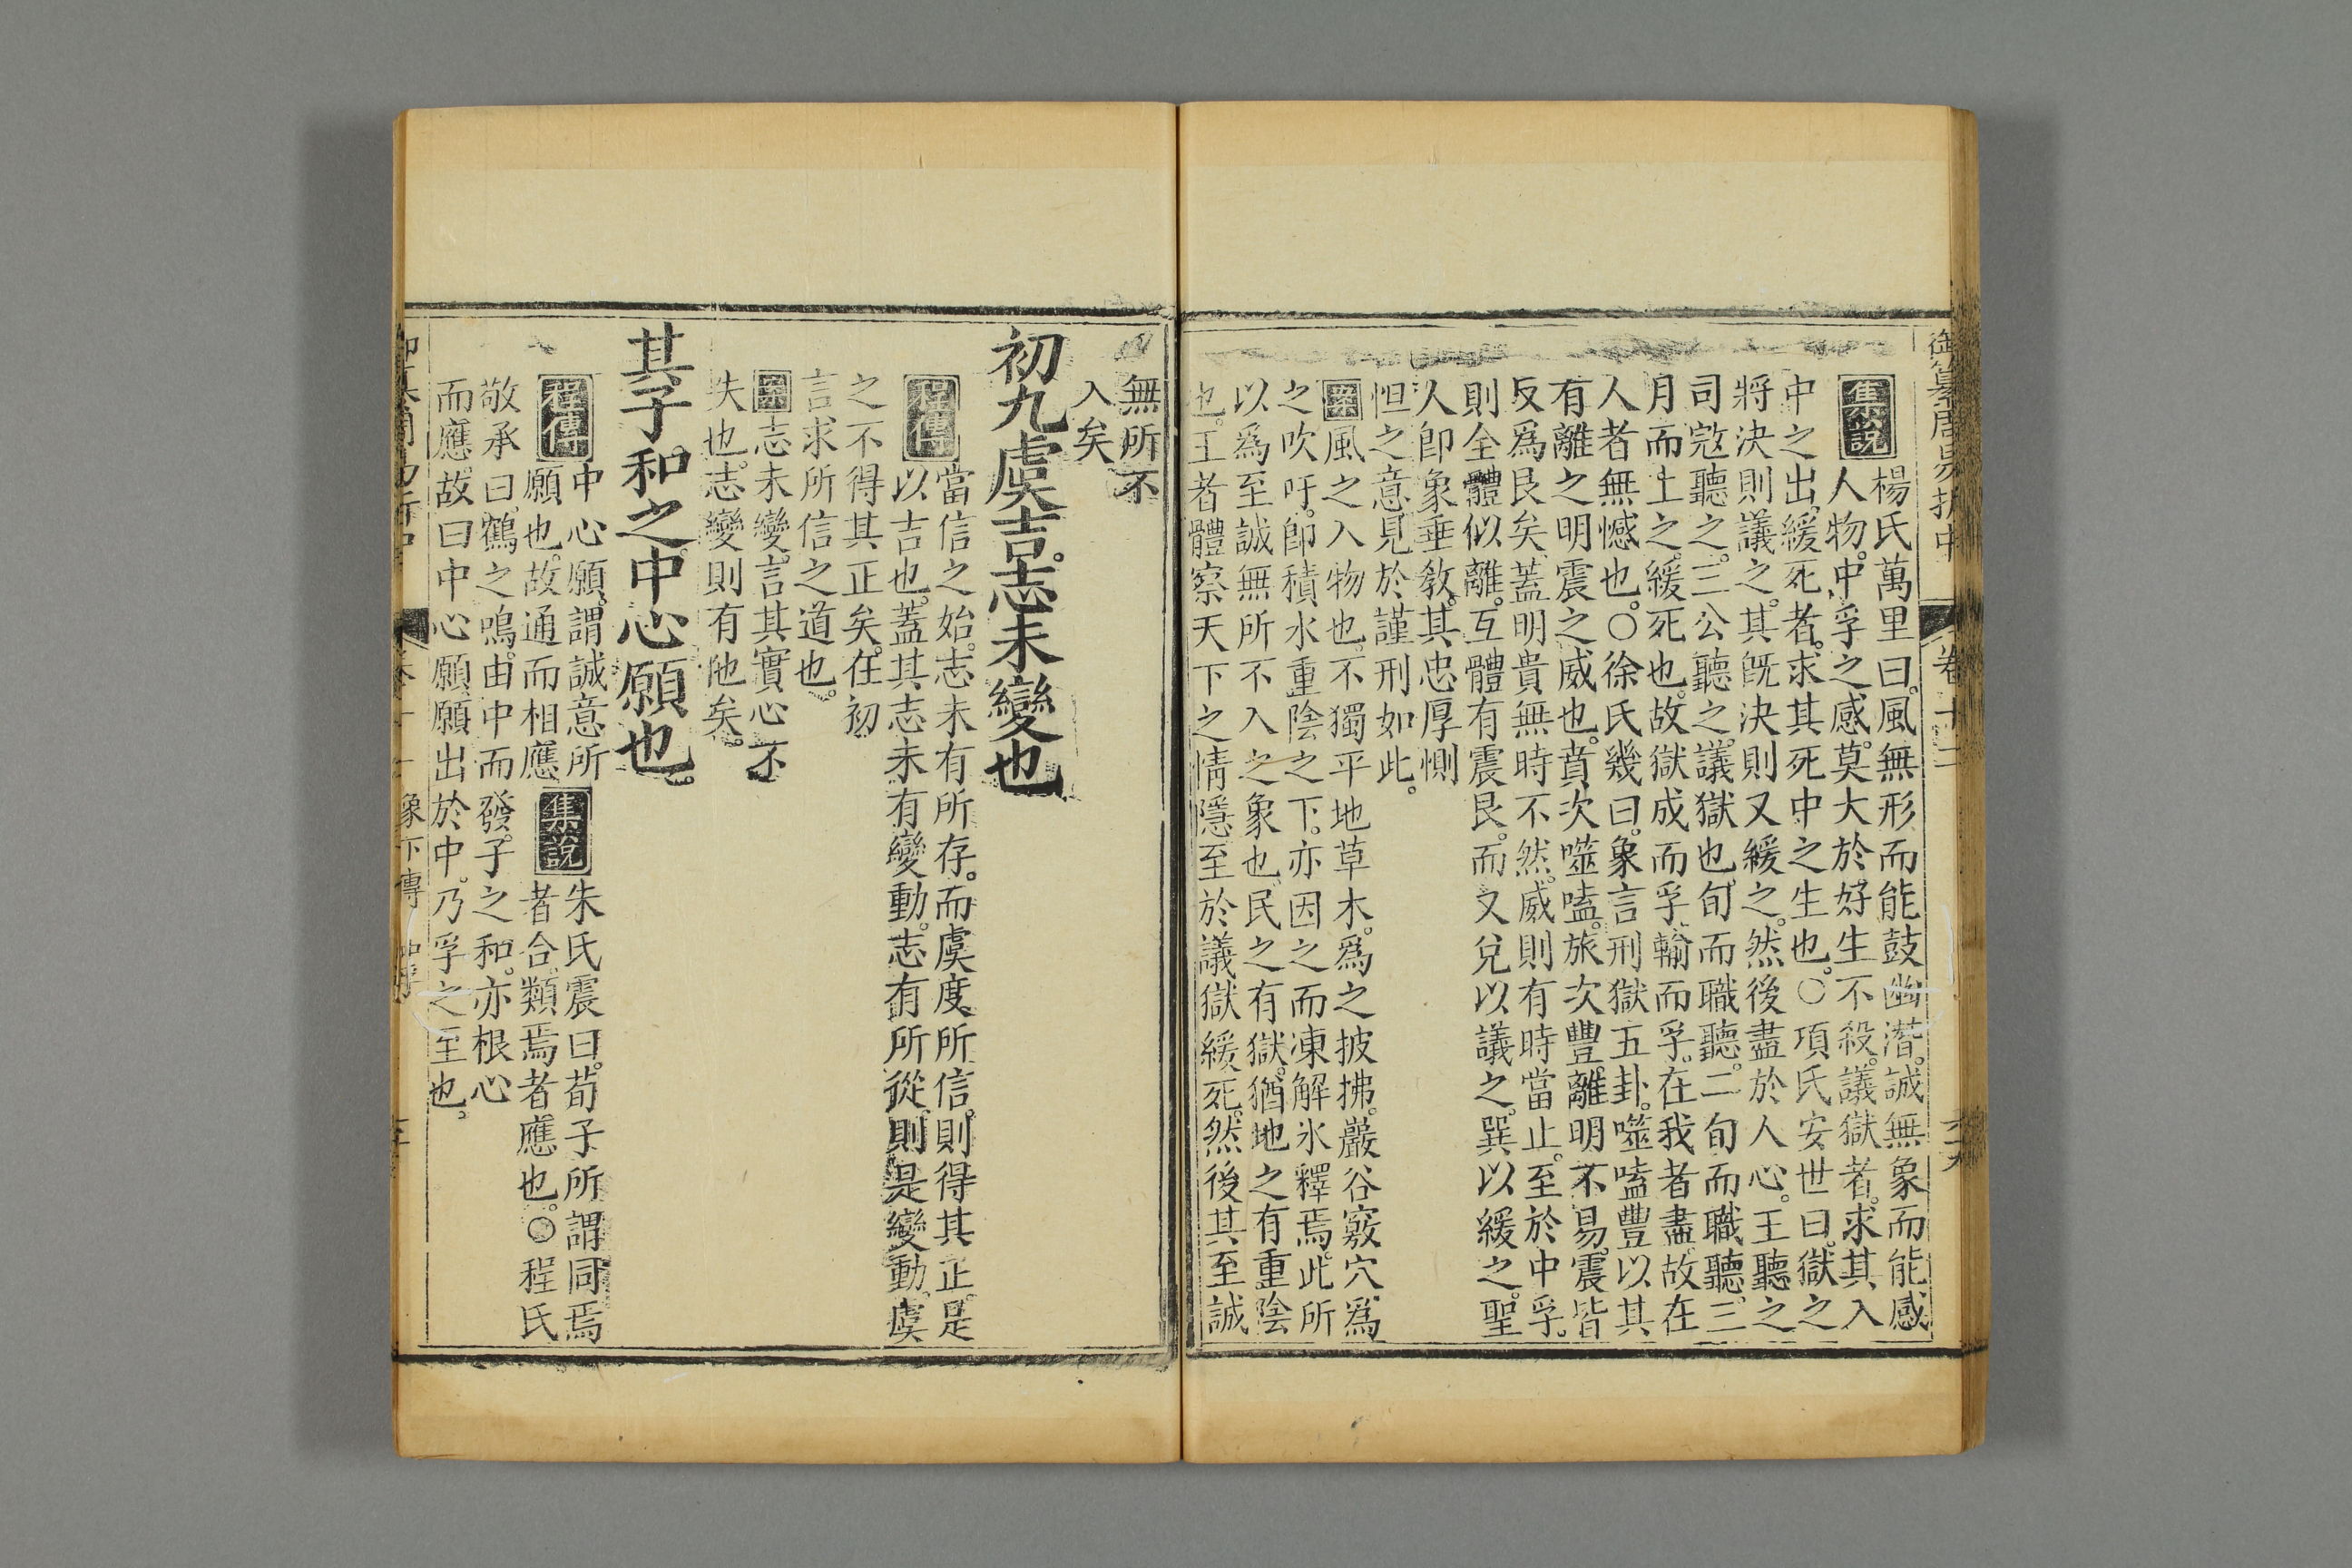 御纂周易折中 卷十二
集說
楊氏萬里曰。風無形而能鼓幽潛。誠無象而能感
人物。中孚之感。莫大於好生不殺。議獄者。求其入
中之出。緩死者。求其死中之生也。○項氏安世曰。獄之
將決則議之。其旣決則又緩之。然後盡於人心。王聽之
司寇聽之。三公聽之。議獄也。旬而職聽。二旬而職聽。三
月而上之。緩死也。故獄成而孚。輸而孚。在我者盡。故在
人者無憾也。○徐氏幾曰。象言刑獄五卦。噬嗑豐以其
有離之明震之威也。賁次噬嗑。旅次豐。離明不易。震皆
反爲艮矣。蓋明貴無時不然。威則有時當止。至於中孚。
則全體似離。互體有震艮。而又兌以議之。巽以緩之。聖
人卽象垂敎。其忠厚惻
怛之意見於謹刑如此。
案風之入物也。不獨平地草木。爲之披拂。巖谷竅穴。爲
之吹吁。卽積水重陰之下。亦因之而凍解氷釋焉。此所
以爲至誠無所不入之象也。民之有獄。猶地之有重陰
也。王者體察天下之情隱至於議獄緩死。然後其至誠
無所不
入矣
初九虞吉。志未變也
程傳
當信之始。志未有所存。而虞度所信。則得其正。是
以吉也。蓋其志未有變動。志有所從。則是變動。虞
之不得其正矣。在初
言求所信之道也。
案志未變。言其實心不
失也。志變則有他矣。
其子和之中心願也。
程傳
中心願。謂誠意所
願也。故通而相應
集說
朱氏震曰。荀子所謂同焉
者合。類焉者應也。○程氏
敬承曰。鶴之鳴。由中而發。子之和。亦根心
而應。故曰中心願。願出於中。乃孚之至也。
象下傳 中孚